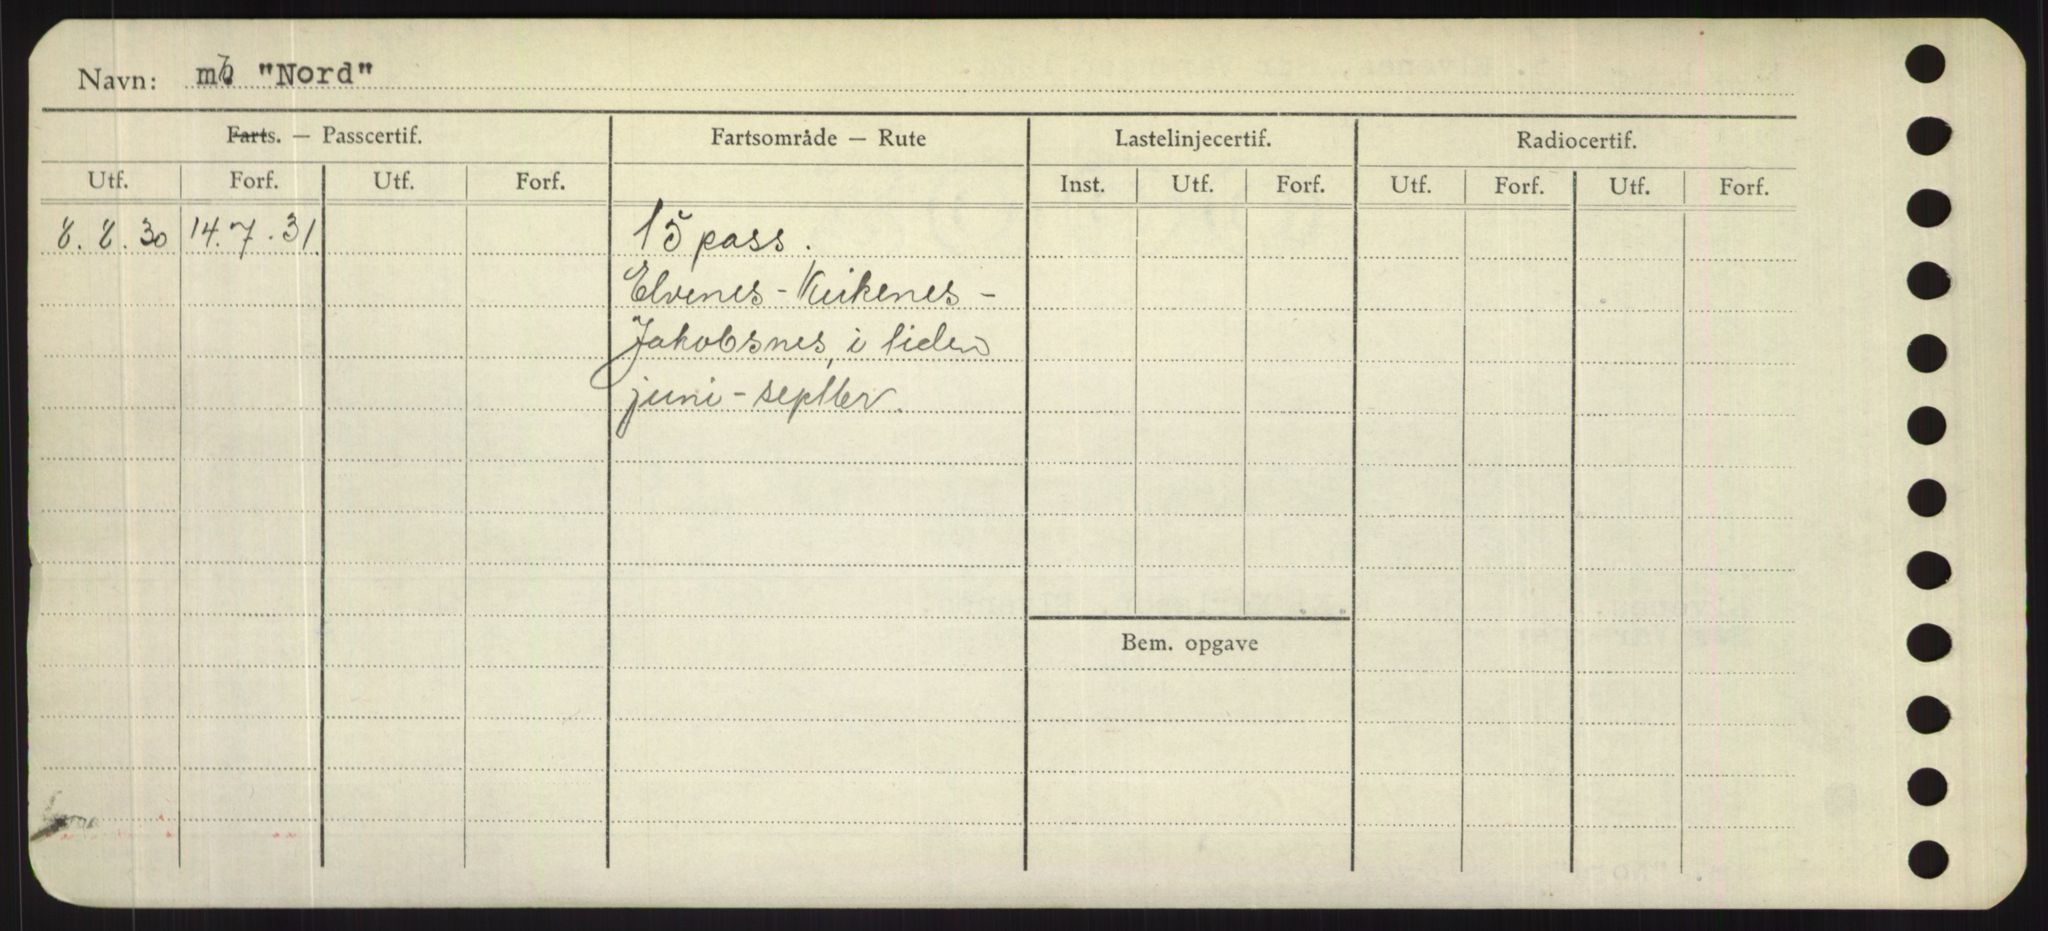 Navn: mb "Nord"
Farts. — Passcertif. Fartsområde — Rute Lastelinjecertif. Radiocertif.
Utf. Forf. Utf. Forf. Inst. Utf. Forf. Utf. Forf. Utf. Forf.
8.8.30 14.7.31 15 pass.
Elvenes - Kirkenes -
Jakobsnes, i tiden
juni - septber.
Bem. opgave